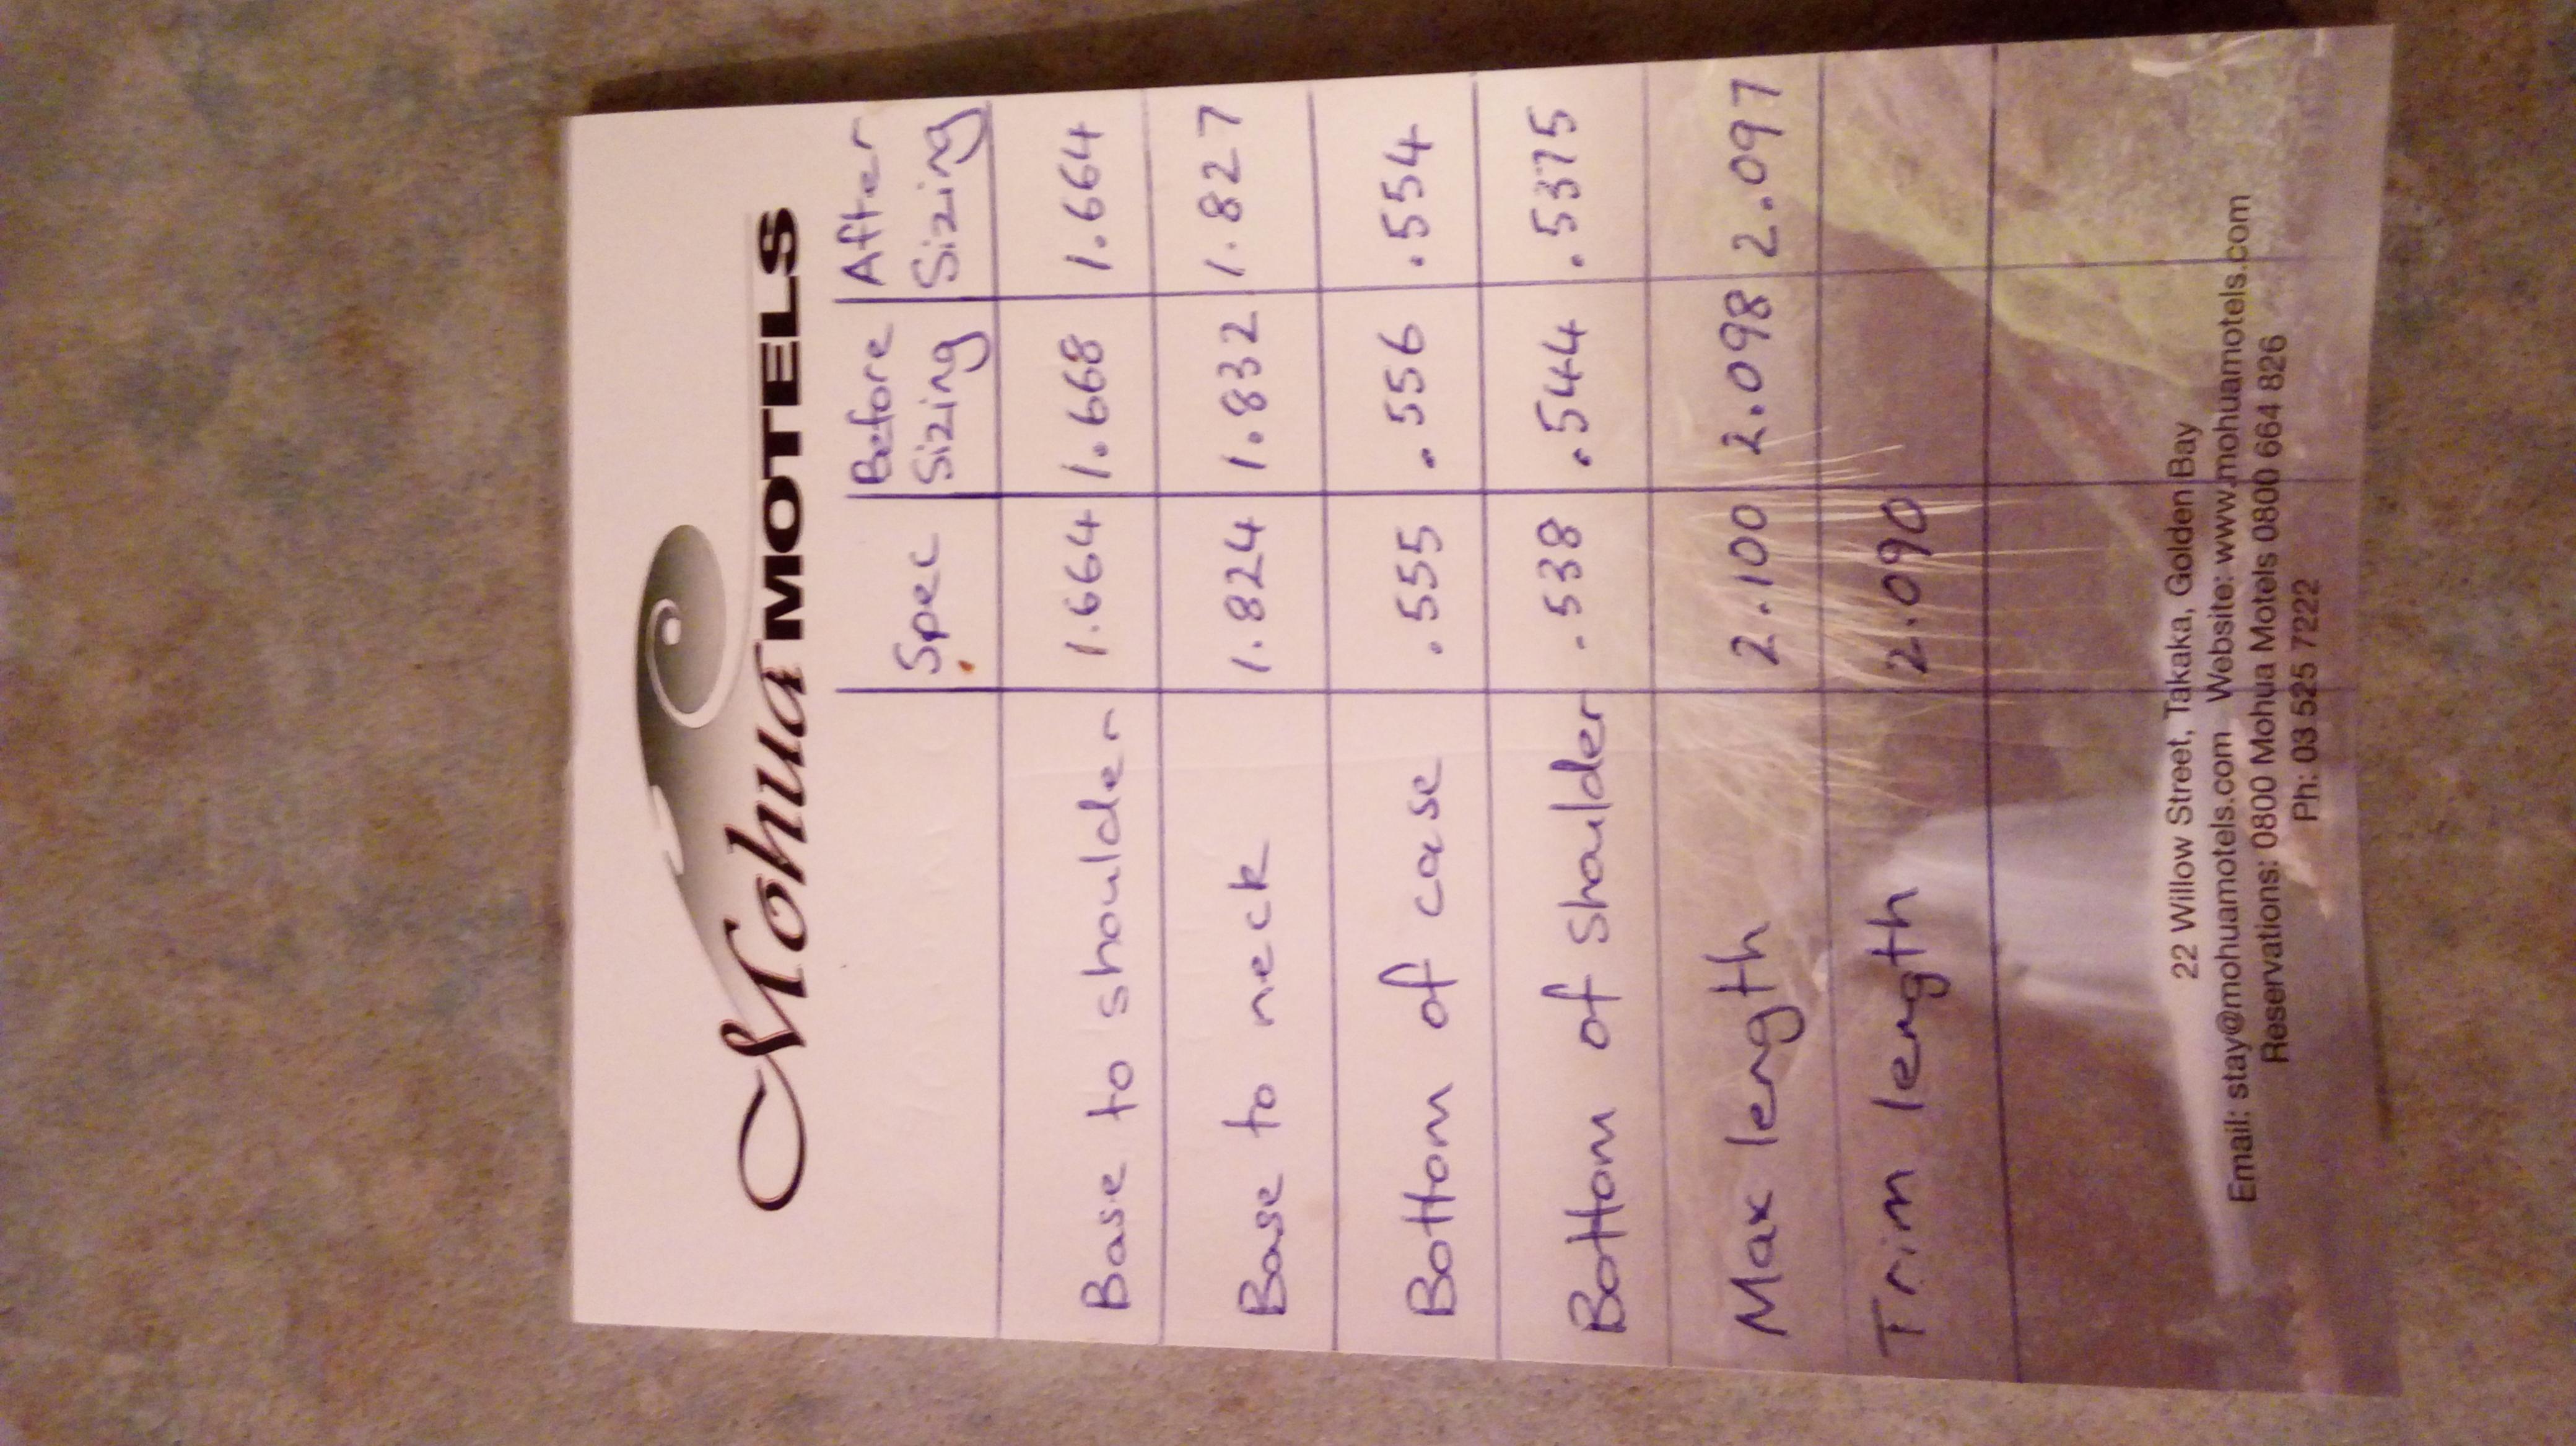 Mohua MOTELS
Spec Before Sizing After Sizing
Base to shoulder 1.664 1.668 1.664
Base to neck 1.824 1.832 1.827
Bottom of case .555 .556 .554
Bottom of shoulder .538 .544 .5375
Max length 2.100 2.098 2.097
Trim length 2.090
22 Willow Street, Takaka, Golden Bay
Email: stay@mohuamotels.com Website: www.mohuamotels.com
Reservations: 0800 Mohua Motels 0800 664 826
Ph: 03 525 7222